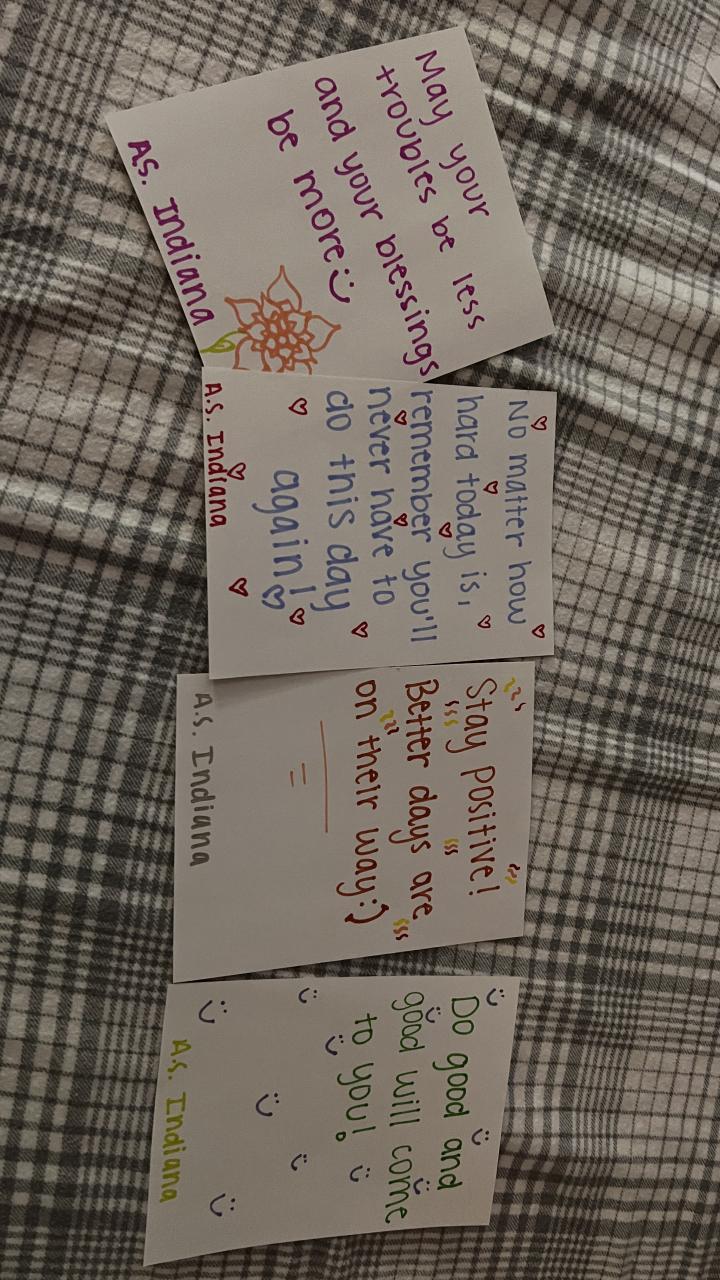 May your
troubles be less
and your blessings
be more:)
A.S. Indiana
No matter how
hard today is,
remember you'll
never have to
do this day
again!
A.S. Indiana
Stay positive!
Better days are
on their way:)
A.S. Indiana
Do good and
good will come
to you!
A.S. Indiana